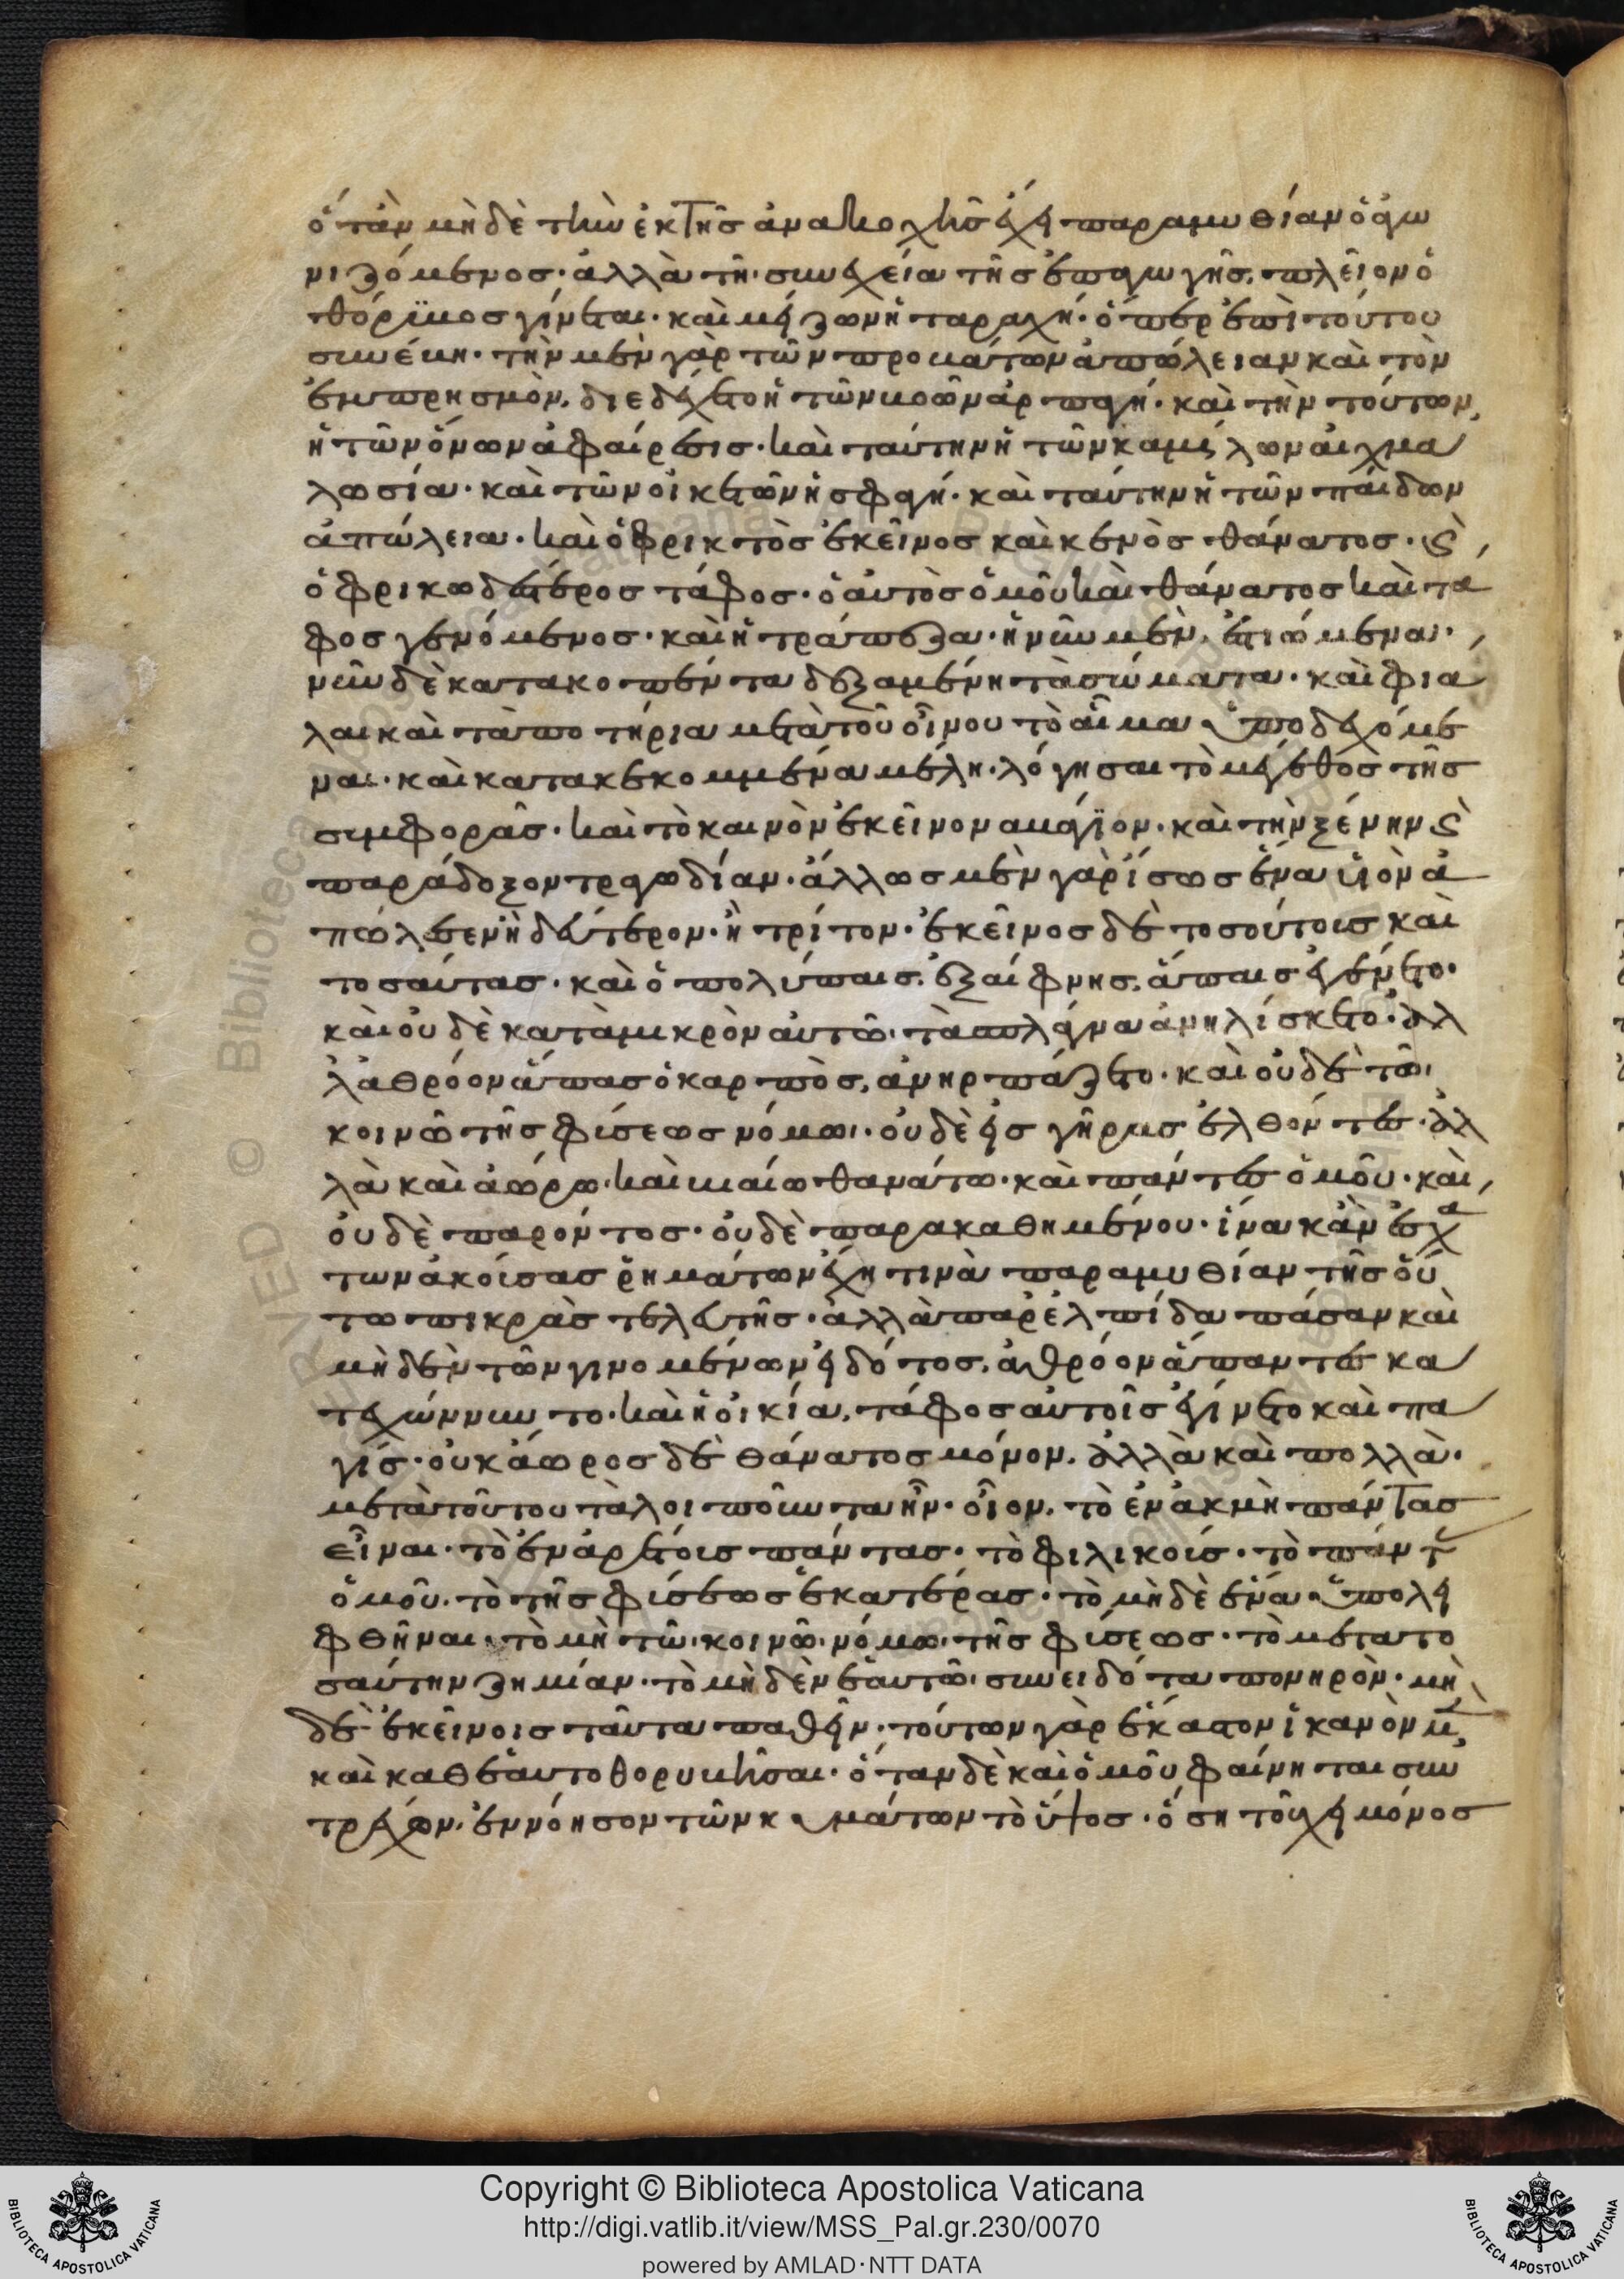 ὅταν μὴ δὲ τὴν ἐκ τῆς ἀνακωχῆς ἔχῃ παραμυθίαν ὁ ἀγω
νιζόμενος· ἀλλὰ τῇ συνεχείᾳ τῆς ἐπαγωγῆς, πλεῖον ὁ
θόρυβος γίνεται· καὶ μείζων ἡ ταραχή· ὅπερ ἐπὶ τούτου
συνέβη· τὴν μὲν γὰρ τῶν προβάτων ἀπώλειαν καὶ τὸν
ἐμπρησμὸν, διεδέχετο ἡ τῶν βοῶν ἁρπαγή· καὶ τὴν τούτων,
ἡ τῶν ὄνων ἀφαίρεσις· καὶ ταύτην ἡ τῶν καμήλων αἰχμα
λωσία· καὶ τῶν οἰκετῶν ἡ σφαγή· καὶ ταύτην ἡ τῶν παίδων
ἀπώλεια· καὶ ὁ φρικτὸς ἐκεῖνος καὶ κενὸς θάνατος· ϛ̀
ὁ φρικωδέστερος τάφος· ὁ αὐτὸς ὁμοῦ καὶ θάνατος καὶ τά
φος γενόμενος· καὶ ἡ τράπεζα· ἡ νῦν μὲν, ἑστιωμένα·
νῦν δὲ κατακοπέντα δεξαμένη τὰ σώματα· καὶ φιά
λαι καὶ τὰ ποτήρια μετὰ τοῦ οἴνου τὸ αἷμα ὑποδεχόμε
ναι· καὶ κατακεκομμένα μέλη· λόγησαι τὸ μέγεθος τῆς
συμφορᾶς· καὶ τὸ καινὸν ἐκεῖνον ναυάγιον· καὶ τὴν ξένην ϛ̀
παράδοξον τραγωδίαν· ἄλλος μὲν γὰρ ἴσως ἕνα υἱὸν ἀ
πώλεσεν ἢ δεύτερον· ἢ τρίτον· ἐκεῖνος δὲ τοσούτοις καὶ
τοσαύτας· καὶ ὁ πολύπαις, ἐξαίφνης, ἄπαις ἐγένετο·
καὶ οὐδὲ κατὰ μικρὸν αὐτῷ τὰ σπλάγχνα ἀνηλίσκετο· ἀλ
λὰ ἀθρόον ἅπας ὁ καρπὸς, ἀνηρπάζετο· καὶ οὐδὲ τῶι
κοινῷ τῆς φύσεως νόμωι· οὐδὲ εἰς γῆρας ἐλθόντες· ἀλ
λὰ καὶ ἀώρῳ καὶ βιαίῳ θανάτῳ· καὶ πάντες ὁμοῦ· καὶ
οὐδὲ παρόντος· οὐδὲ παρακαθημένου· ἵνα κἂν ἐσχά
των ἀκούσας ῥημάτων ἔχῃ τινὰ παραμυθίαν τῆς οὕ
τω πικρᾶς τελευτῆς· ἀλλὰ παρ' ἐλπίδα πᾶσαν καὶ
μηδὲν τῶν γινομένων εἰδότος, ἀθρόον ἅπαντες κα
τεχώννυντο· καὶ ἡ οἰκία, τάφος αὐτοῖς ἐγίνετο καὶ πα
γίς· οὐκ ἄωρος δὲ θάνατος μόνον, ἀλλὰ καὶ πολλὰ·
μετὰ τούτου τὰ λοιποῦντα ἦν· οἷον, τὸ ἐν ἀκμῇ πάντας
εἶναι· τὸ ἐναρέτοις πάντας· τὸ φιλικοίς· τὸ πάντ(ας)
ὁμοῦ· τὸ τῆς φύσεως ἑκατέρας· τὸ μηδὲ ἕνα ὑπολει
φθῆναι· τὸ μὴ τῷ κοινῷ νόμῳ τῆς φύσεως· τὸ μετὰ το
σαύτην ζημίαν· τὸ μηδὲν ἑαυτῷ συνειδότα πονηρὸν· μὴ
δὲ ἐκείνοις ταῦτα παθεῖν· τούτων γὰρ ἕκαστον ἱκανὸν μὲν
καὶ καθ' ἑαυτὸ θορυβῆσαι· ὅταν δὲ καὶ ὁμοῦ φαίνηται συν
τρέχον, ἐννόησον τῶν κυμάτων τὸ ὕψος· ὅση τοῦ χειμῶνος
Copyright © Biblioteca Apostolica Vaticana
http://digi.vatlib.it/view/MSS_Pal.gr.230/0070
powered by AMLAD·NTT DATA